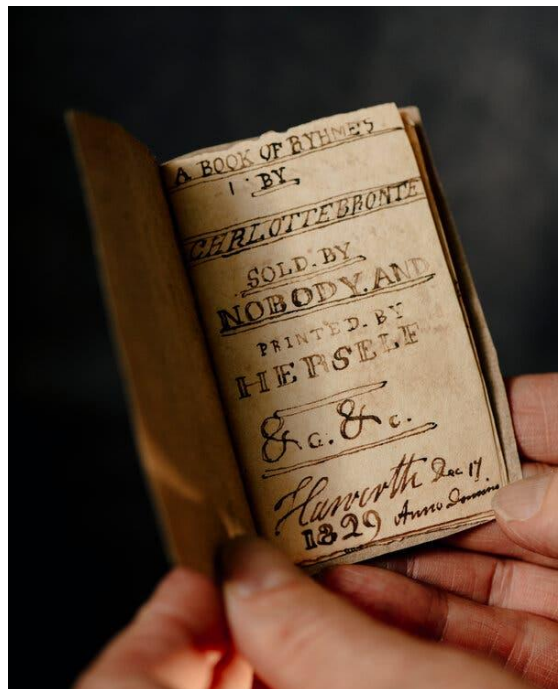 A BOOK OF RYHMES
BY
CHRLOTTE BRONTE
SOLD. BY
NOBODY. AND
PRINTED. BY
HERSELF
&c. &c.
Haworth Dec 17
1829 Anno Domino